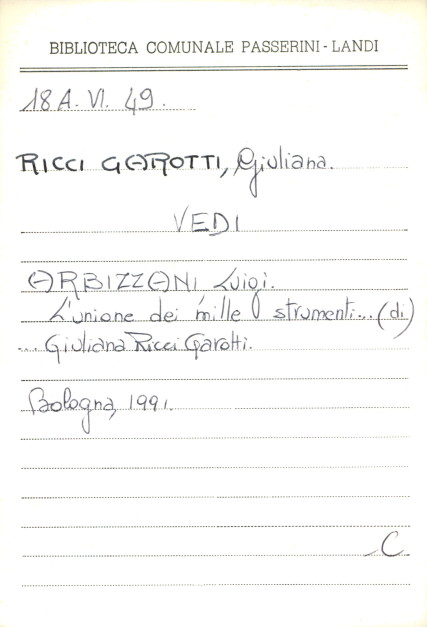 BIBLIOTECA COMUNALE PASSERINI-LANDI
18 A. VI. 49.
RICCI GAROTTI, Giuliana.
VEDI
ARBIZZANI Luigi.
L'unione dei mille strumenti... (di)
... Giuliana Ricci Garotti.
Bologna, 1991.
C